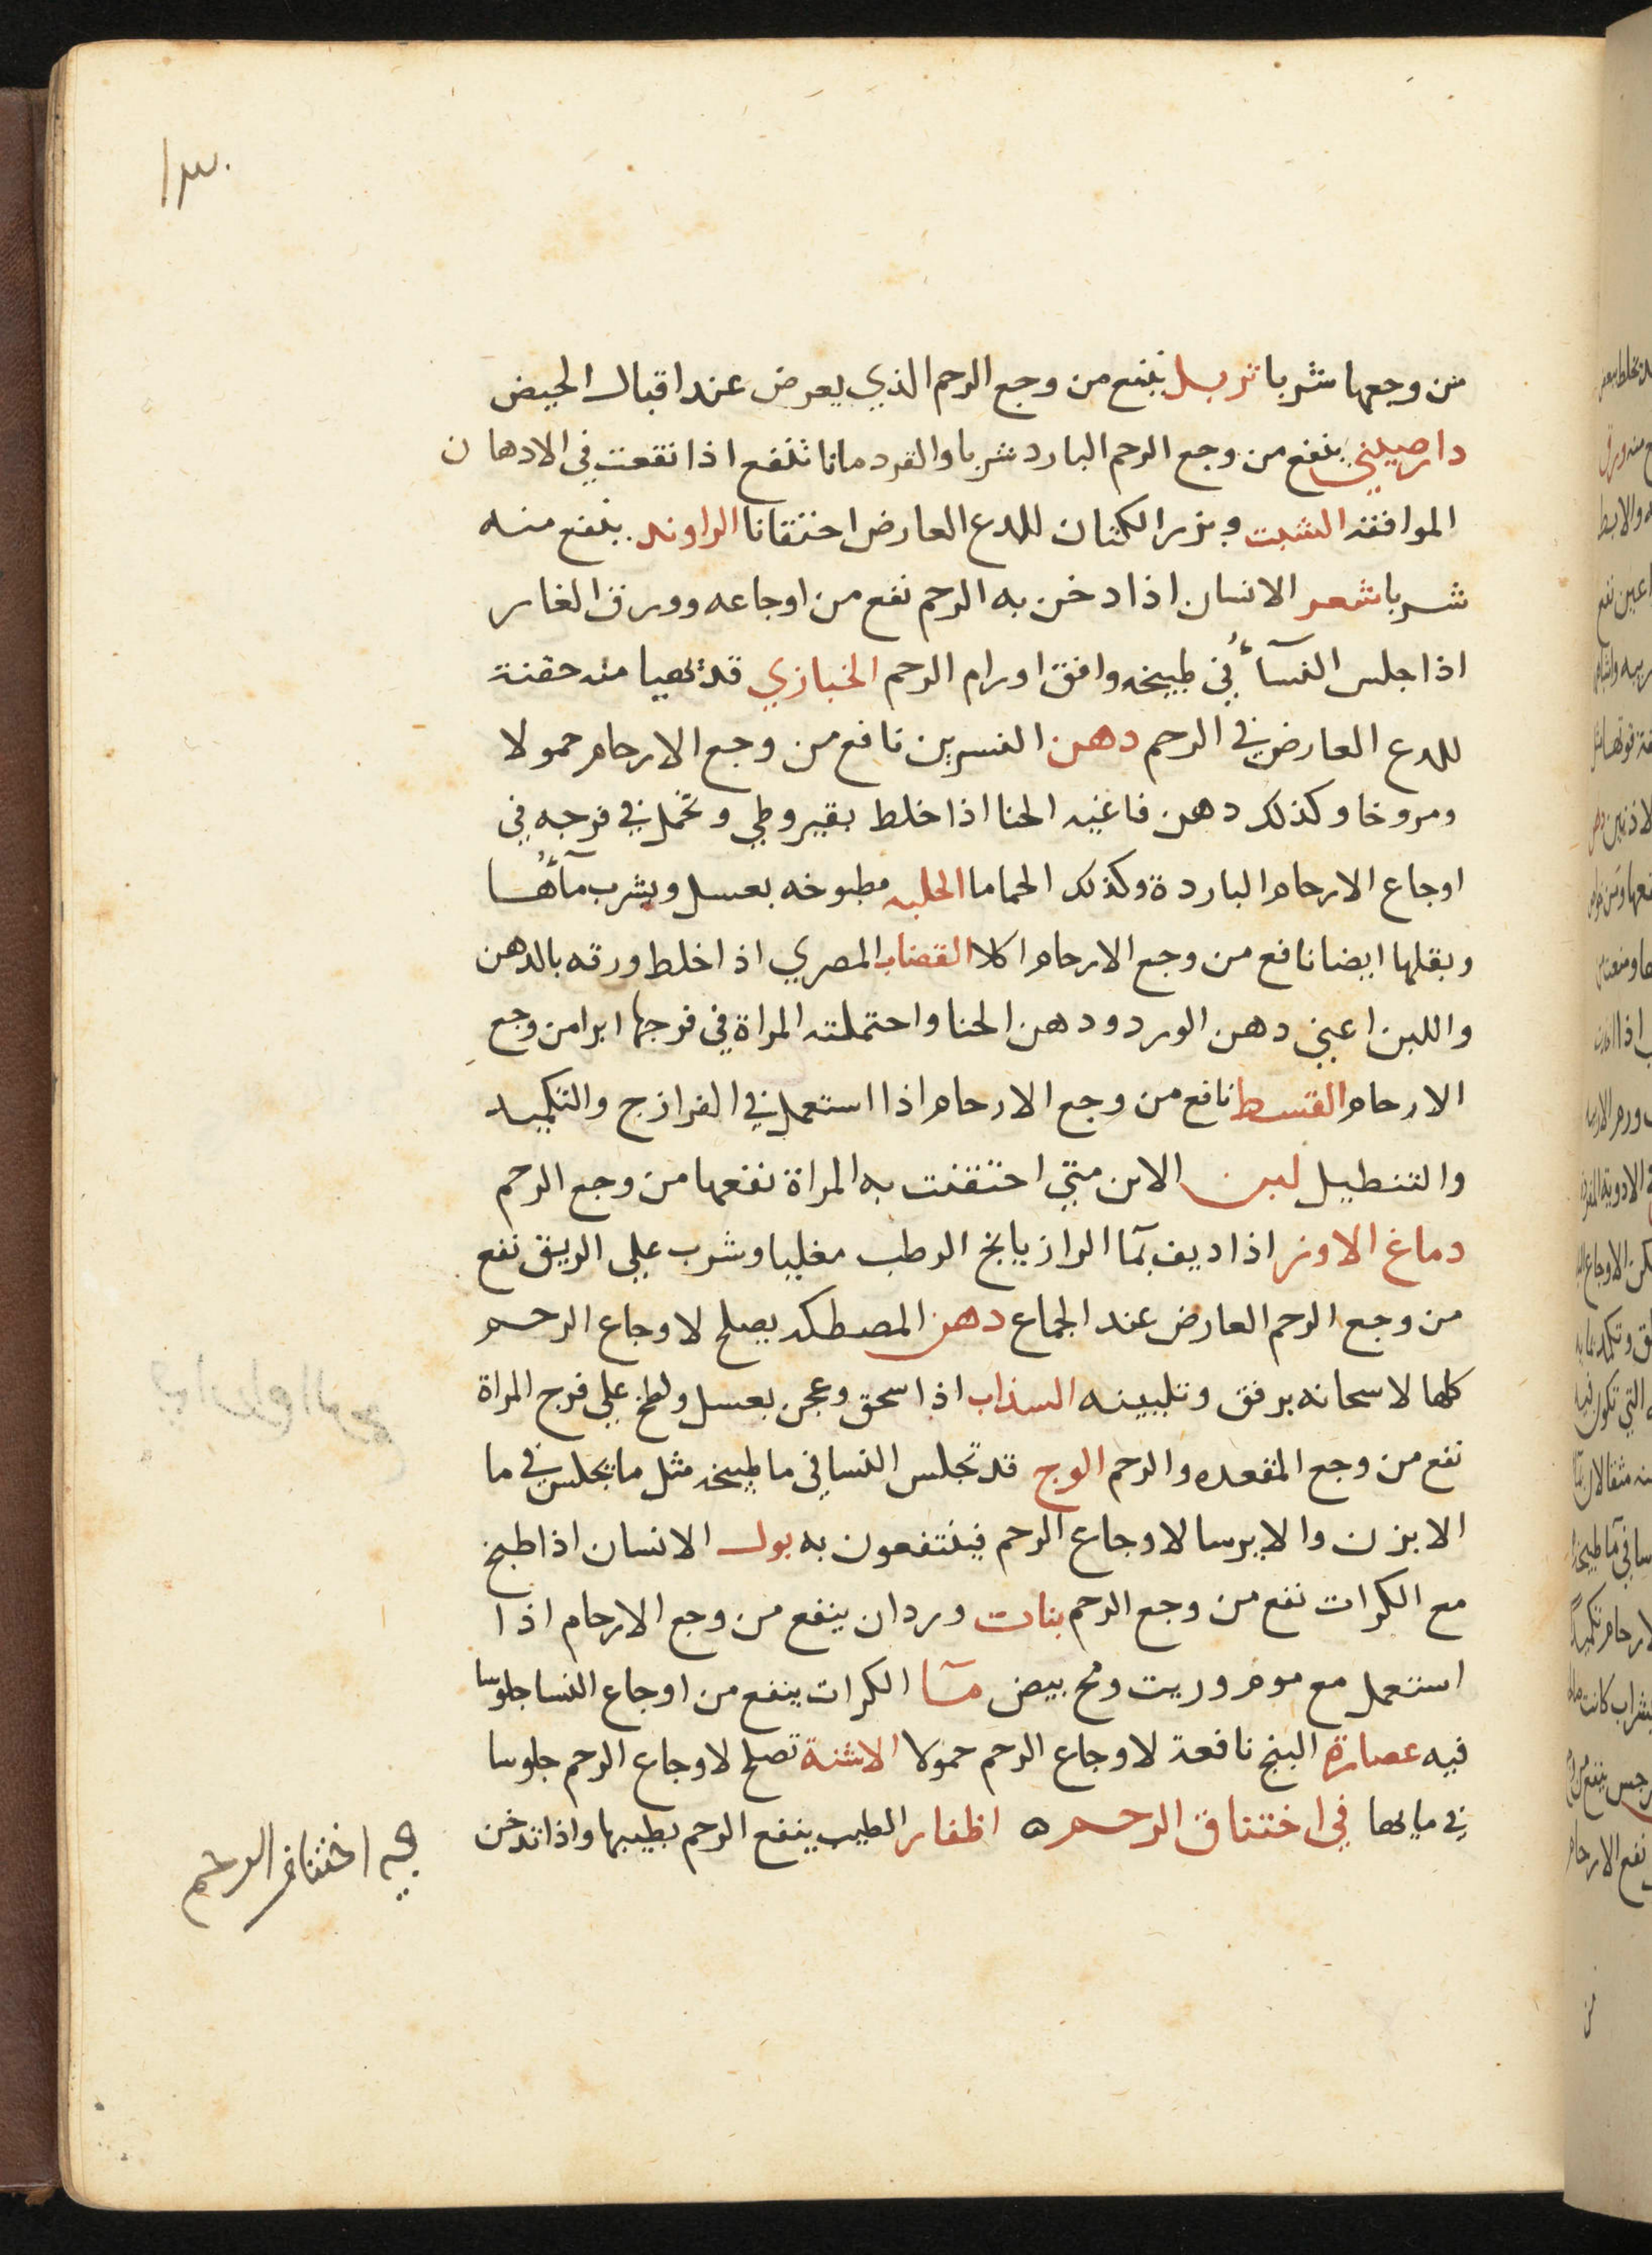 ١٣٠
من وجعها شربا تربل ينفع من وجع الرحم الذي يعرض عند اقبال الحيض
دارصيني ينفع من وجع الرحم البارد شربا والقردمانا تنفع اذا نقعت في الادهان
الموافقة الشبت وبزر الكتان للدع العارض احتقانا الراوند ينفع منه
شربا شعر الانسان اذا دخن به الرحم نفع من اوجاعه وورق الغار
اذا جلس النسآء في طبيخه وافق اورام الرحم الخبازي قد تهيا منه حقنة
للدع العارض في الرحم دهن النسرين نافع من وجع الارحام حمولا
ومروخا وكذلك دهن فاغيه الحنا اذا خلط بقيروطي وتحمل في فرجه في
اوجاع الارحام الباردة وكذلك الحماما الحلبه مطبوخه بعسل ويشرب مآءها
وبقلها ايضا نافع من وجع الارحام اكلا القضاب المصري اذا خلط ورقه بالدهن
واللبن اعني دهن الورد ودهن الحنا واحتملته المراة في فرجها ابرا من وجع
الارحام القسط نافع من وجع الارحام اذا استعمل في الفرازج والتكميد
والتنطيل لبن الاتن متي احتقنت به المراة نفعها من وجع الرحم
دماغ الاوز اذا ديف بمآ الرازيانج الرطب مغليا وشرب علي الريق نفع
من وجع الرحم العارض عند الجماع دهن المصطكد يصلح لاوجاع الرحم
كلها لاسحانه برفق وتليينه السذاب اذا سحق وعجن بعسل ولطخ علي فرج المراة
نفع من وجع المقعده والرحم الوج قد تجلس النسا في ما طبيخه مثل ما يجلس في ما
الابزن والايرسا لاوجاع الرحم فينتفعون به بول الانسان اذا طبخ
مع الكراث نفع من وجع الرحم بنات وردان ينفع من وجع الارحام اذا
استعمل مع موم وزيت ومح بيض مآ الكراث ينفع من اوجاع النسا جلوسا
فيه عصارة البنج نافعة لاوجاع الرحم حمولا الاشنة تصلح لاوجاع الرحم جلوسا
في مايها في اختناق الرحم ه اظفار الطيب ينفع الرحم بطيبها واذا تدخن
في اختناق الرحم